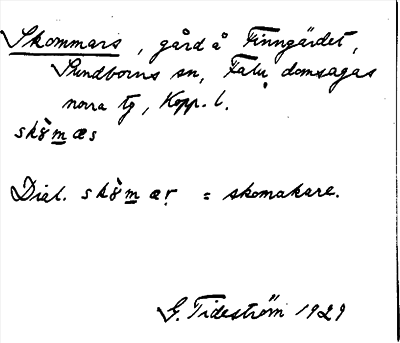 Skommars, gård å Finngärdet,
Sundborns sn, Falu domsagas
norra tg, Kopp. l.
skǒ̀mæs
Dial. skǒ̀mær = skomakare.
G. Tideström 1929